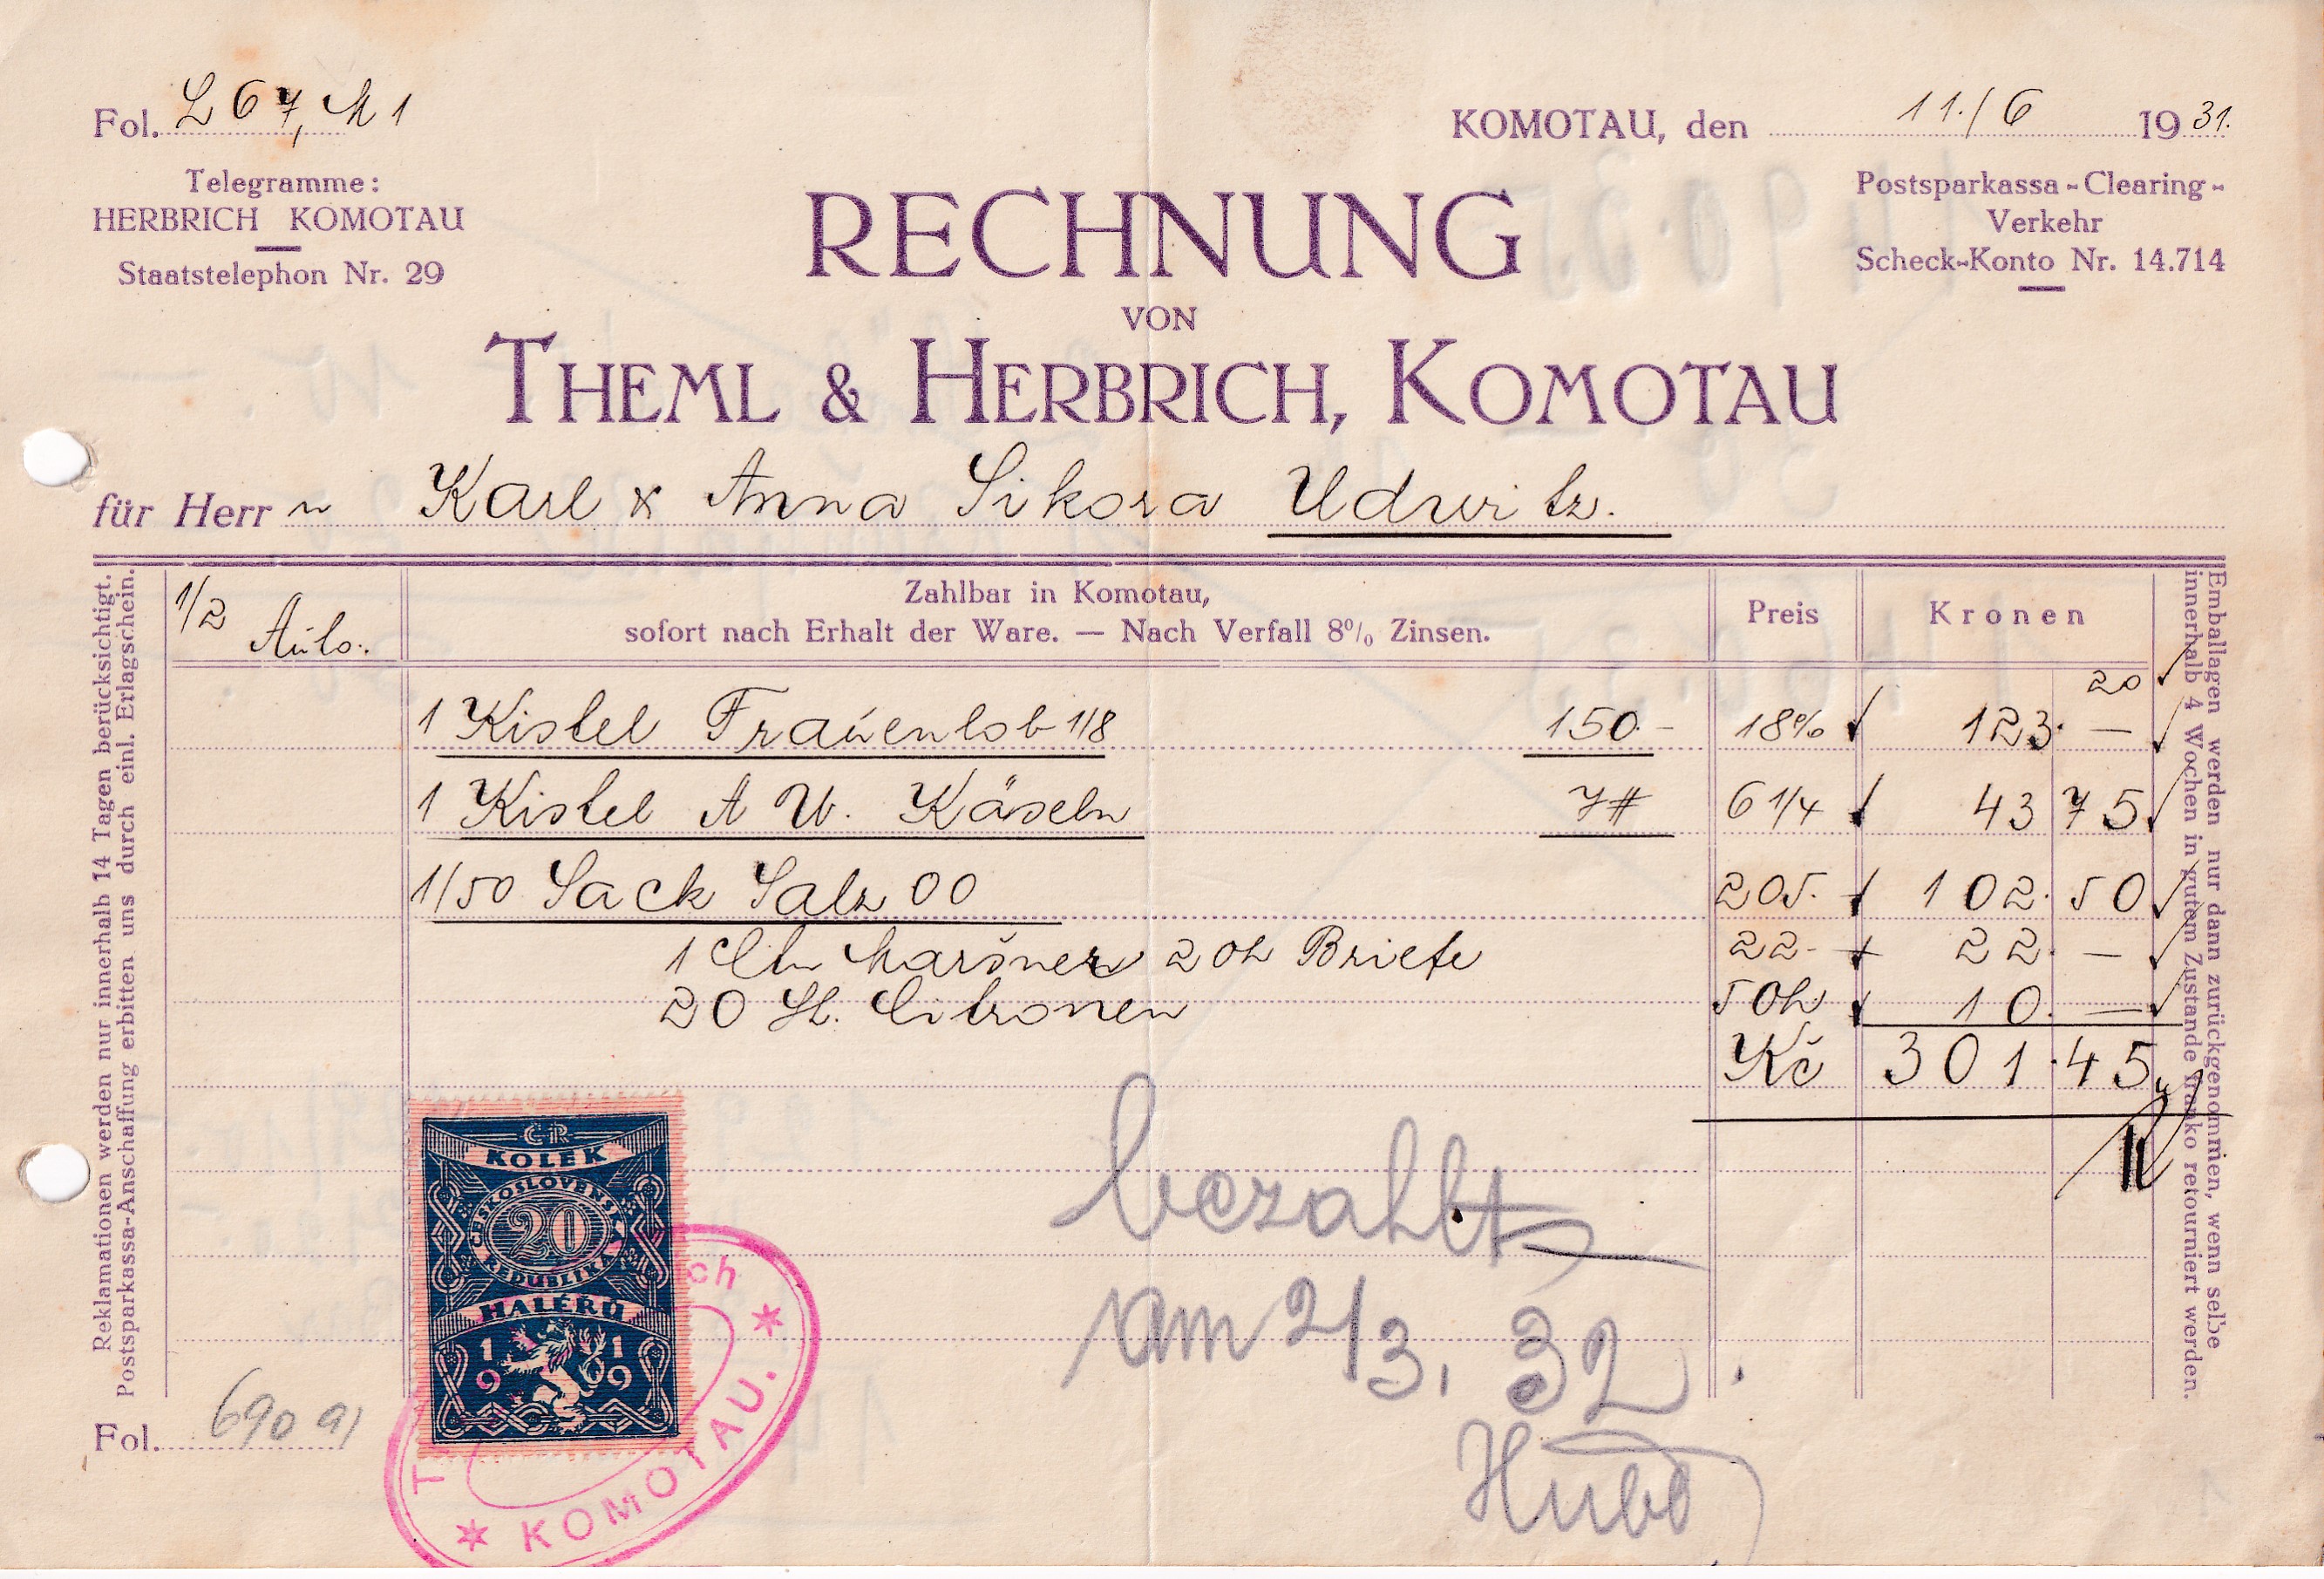 Fol. L 67, M 1
KOMOTAU, den 11./6 1931.
Telegramme:
HERBRICH KOMOTAU
Staatstelephon Nr. 29
Postsparkassa-Clearing-
Verkehr
Scheck-Konto Nr. 14.714
RECHNUNG
VON
THEML & HERBRICH, KOMOTAU
für Herr n Karl & Anna Sikora Udwitz.
1/2 Auto.
Zahlbar in Komotau,
sofort nach Erhalt der Ware. — Nach Verfall 8% Zinsen.
Preis
Kronen
20
1 Kistel Frauenlob 1/8 150.- 18% 123. —
1 Kistel A W. Käseln 7# 6 1/4 43 75
1/50 Sack Salz 00 205. 102. 50
1 20h Briefe 22- 22. —
20 St. Citronen 50h 10. —
Kč 301.45
bezahlt
am 2/3. 32
Fol. 690
Reklamationen werden nur innerhalb 14 Tagen berücksichtigt.
Postsparkassa-Anschaffung erbitten uns durch einl. Erlagschein.
Emballagen werden nur dann zurückgenommen, wenn selbe
innerhalb 4 Wochen in gutem Zustande franko retourniert werden.
ČR
KOLEK
ČESKOSLOVENSKÁ
20
REPUBLIKA
HALÉRŮ
1919
T ch
* KOMOTAU. *